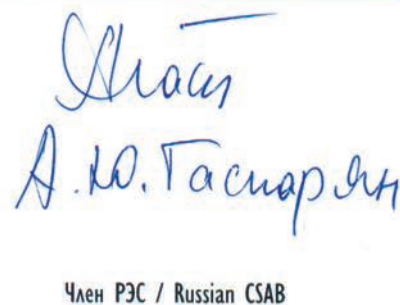 А.Ю. Гаспарян
Член РЭС / Russian CSAB